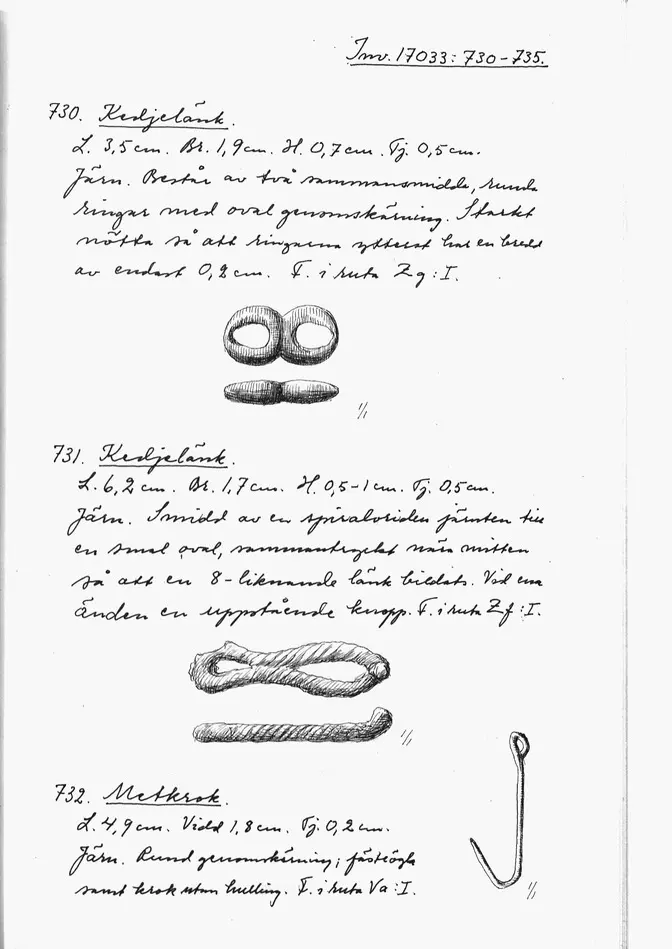 Inv. 17033: 730-735.
730. Kedjelänk.
L. 3,5 cm. Br. 1,9 cm. H. 0,7 cm. Tj. 0,5 cm.
Järn. Består av två sammansmidda, runda
ringar med oval genomskärning. Starkt
nötta så att ringarna ytterst har en bredd
av endast 0,2 cm. F. i ruta Zg:I.
1/1
731. Kedjelänk.
L. 6,2 cm. Br. 1,7 cm. H. 0,5-1 cm. Tj. 0,5 cm.
Järn. Smidd av en spiralvriden järnten till
en smal oval, sammantryckt nära mitten
så att en 8-liknande länk bildats. Vid ena
änden en uppstående knopp. F. i ruta Zf:I.
1/1
732. Metkrok.
L. 4,9 cm. Vidd 1,8 cm. Tj. 0,2 cm.
Järn. Rund genomskärning; fästögla
samt krok utan hulling. F. i ruta Va:I.
1/1